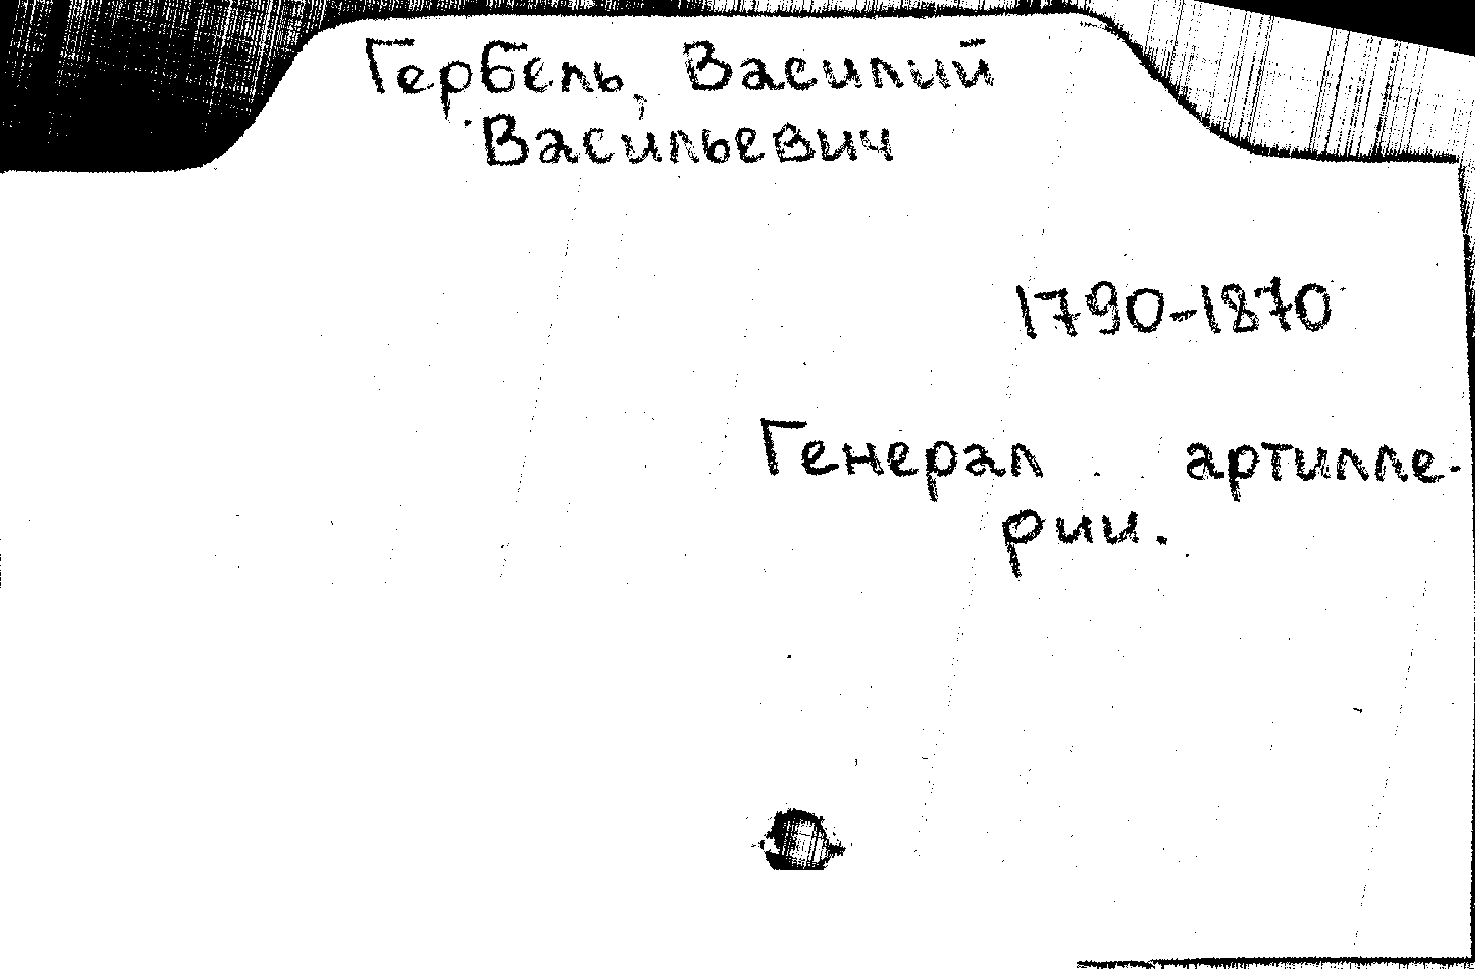 Гербель, Василий
Васильевич
1790-1870
Генерал артилле-
рии.